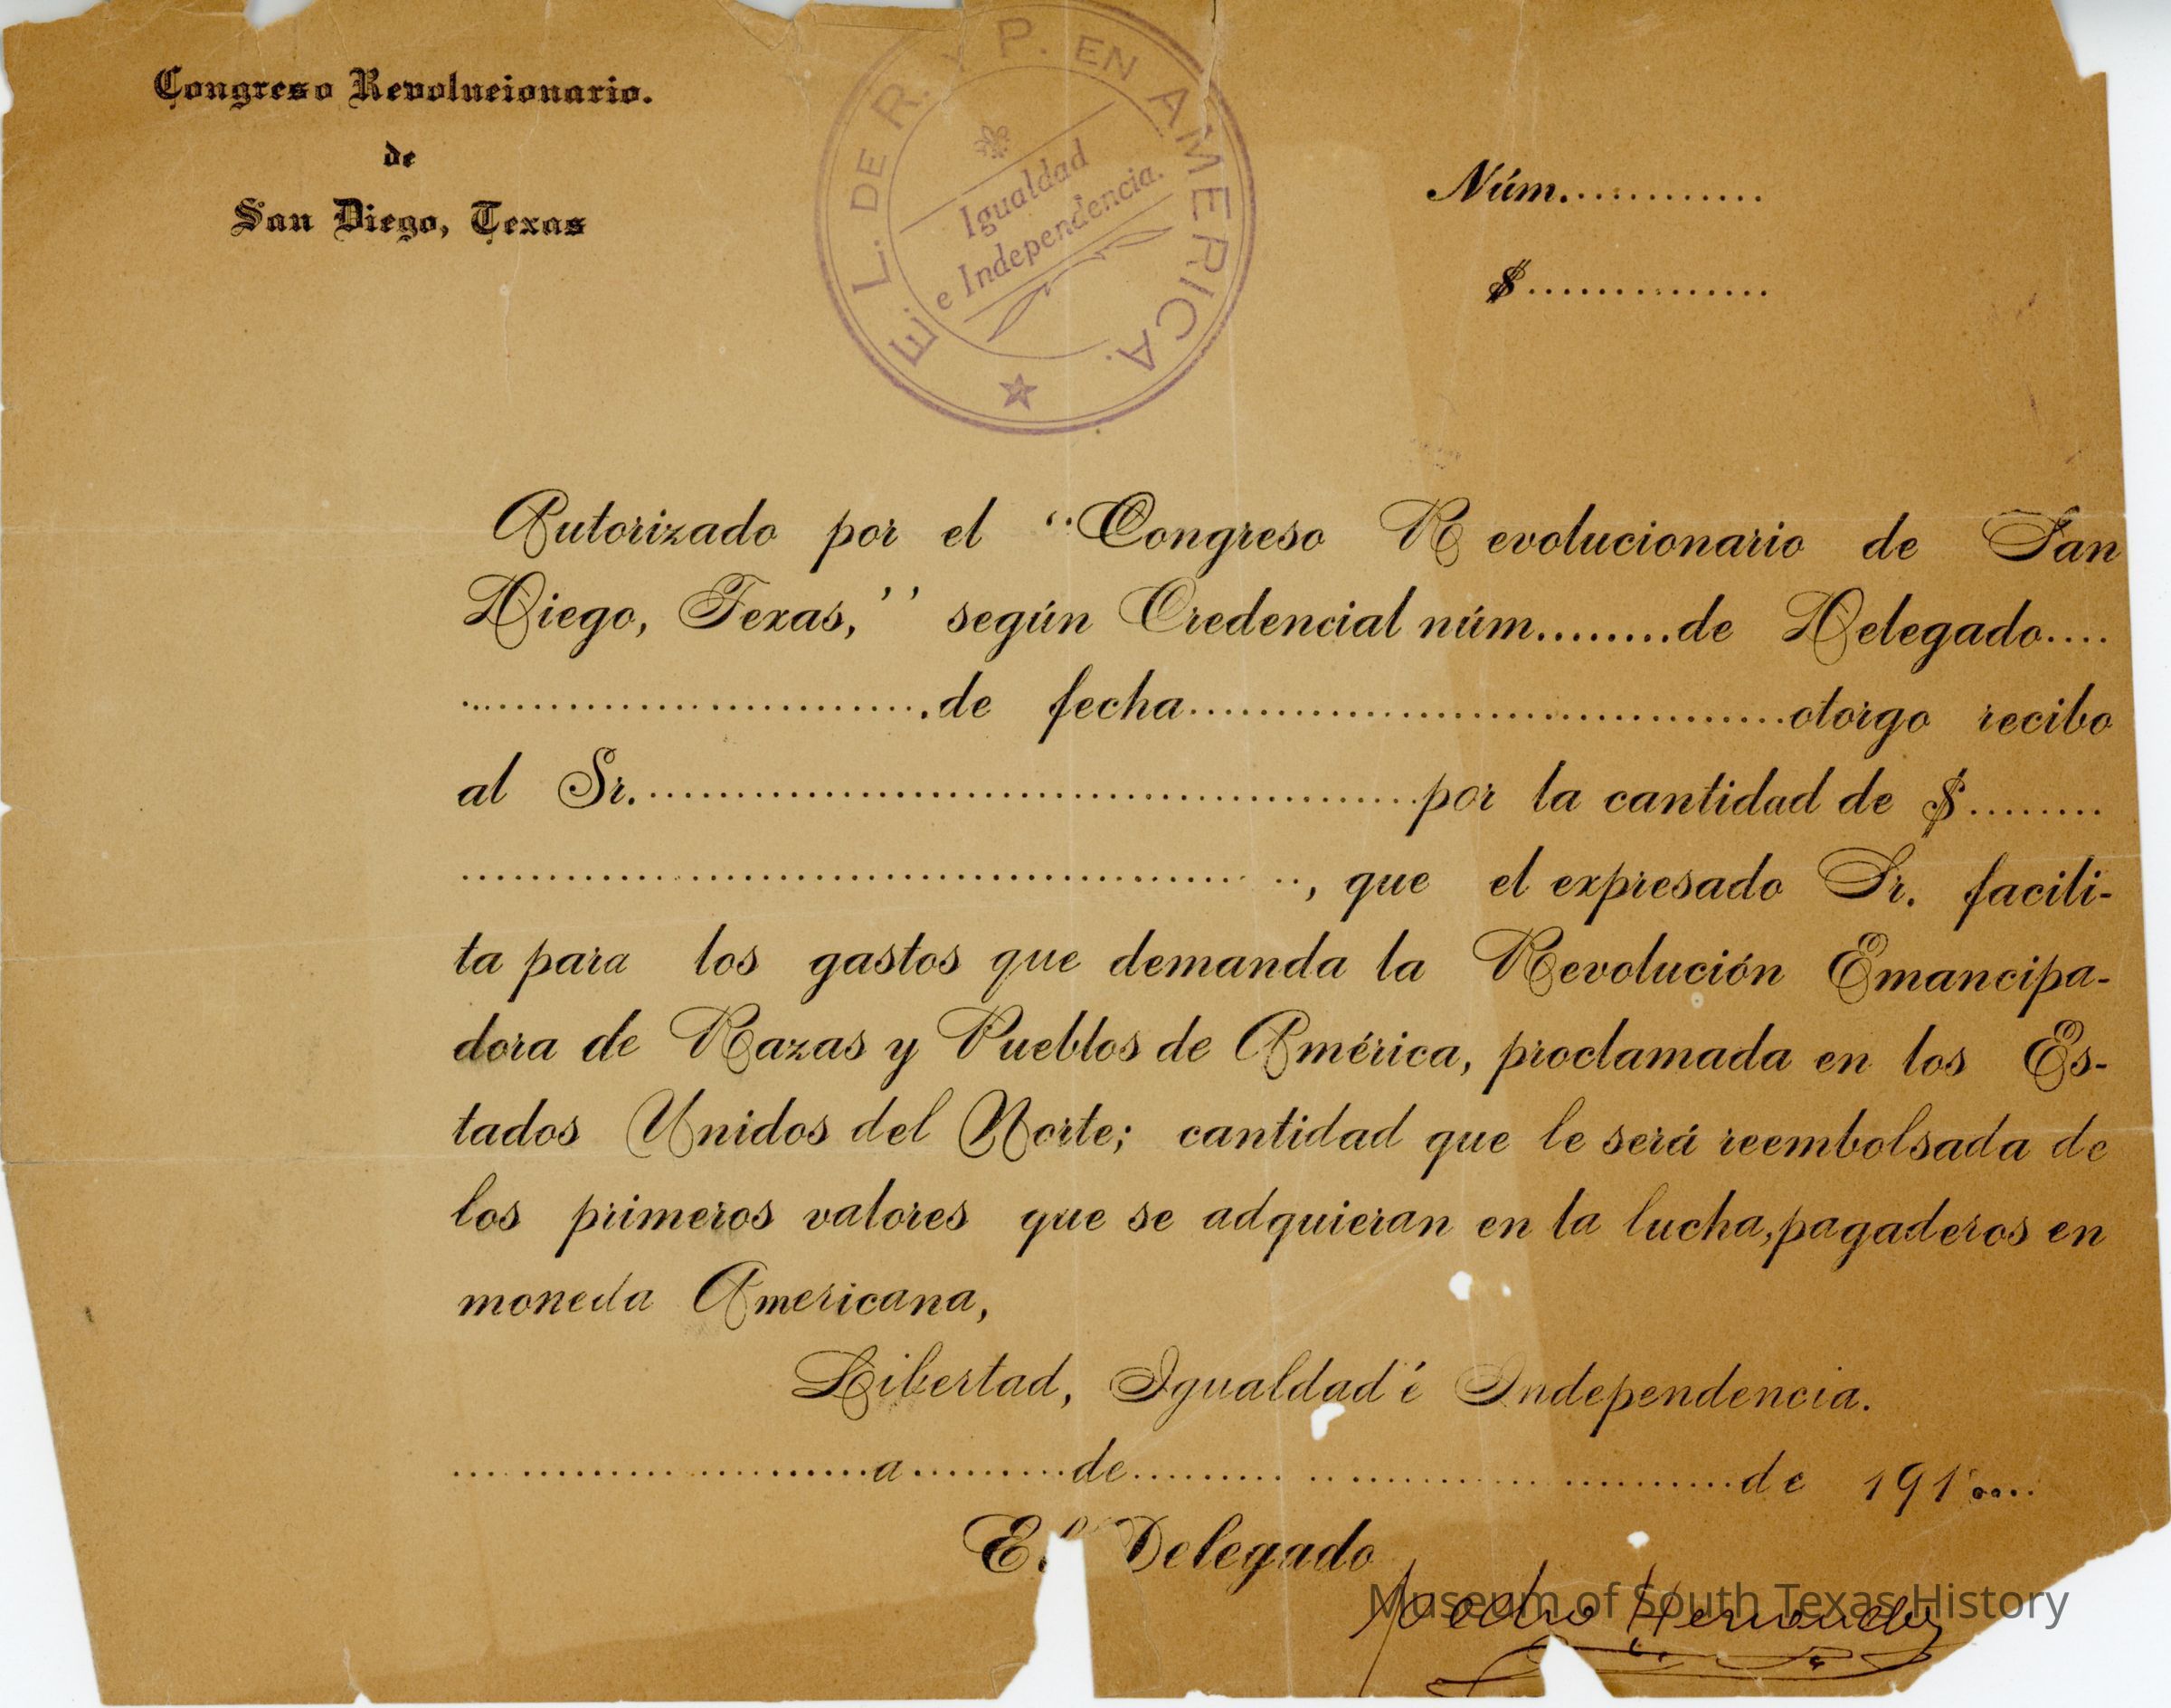 Congreso Revolucionario.
de
San Diego, Texas
E. L. DE R. Y P. EN AMERICA.
Igualdad
e Independencia.
Núm.............
$..............
Autorizado por el "Congreso Revolucionario de San
Diego, Texas,'' según Credencial núm.........de Delegado....
............................de fecha..................................otorgo recibo
al Sr.............................................por la cantidad de $........
..............................................., que el expresado Sr. facili-
ta para los gastos que demanda la Revolución Emancipa-
dora de Razas y Pueblos de América, proclamada en los Es-
tados Unidos del Norte; cantidad que le será reembolsada de
los primeros valores que se adquieran en la lucha, pagaderos en
moneda Americana,
Libertad, Igualdad é Independencia.
.........................a..........de...................................de 191....
El Delegado
Hernandez
Museum of South Texas History